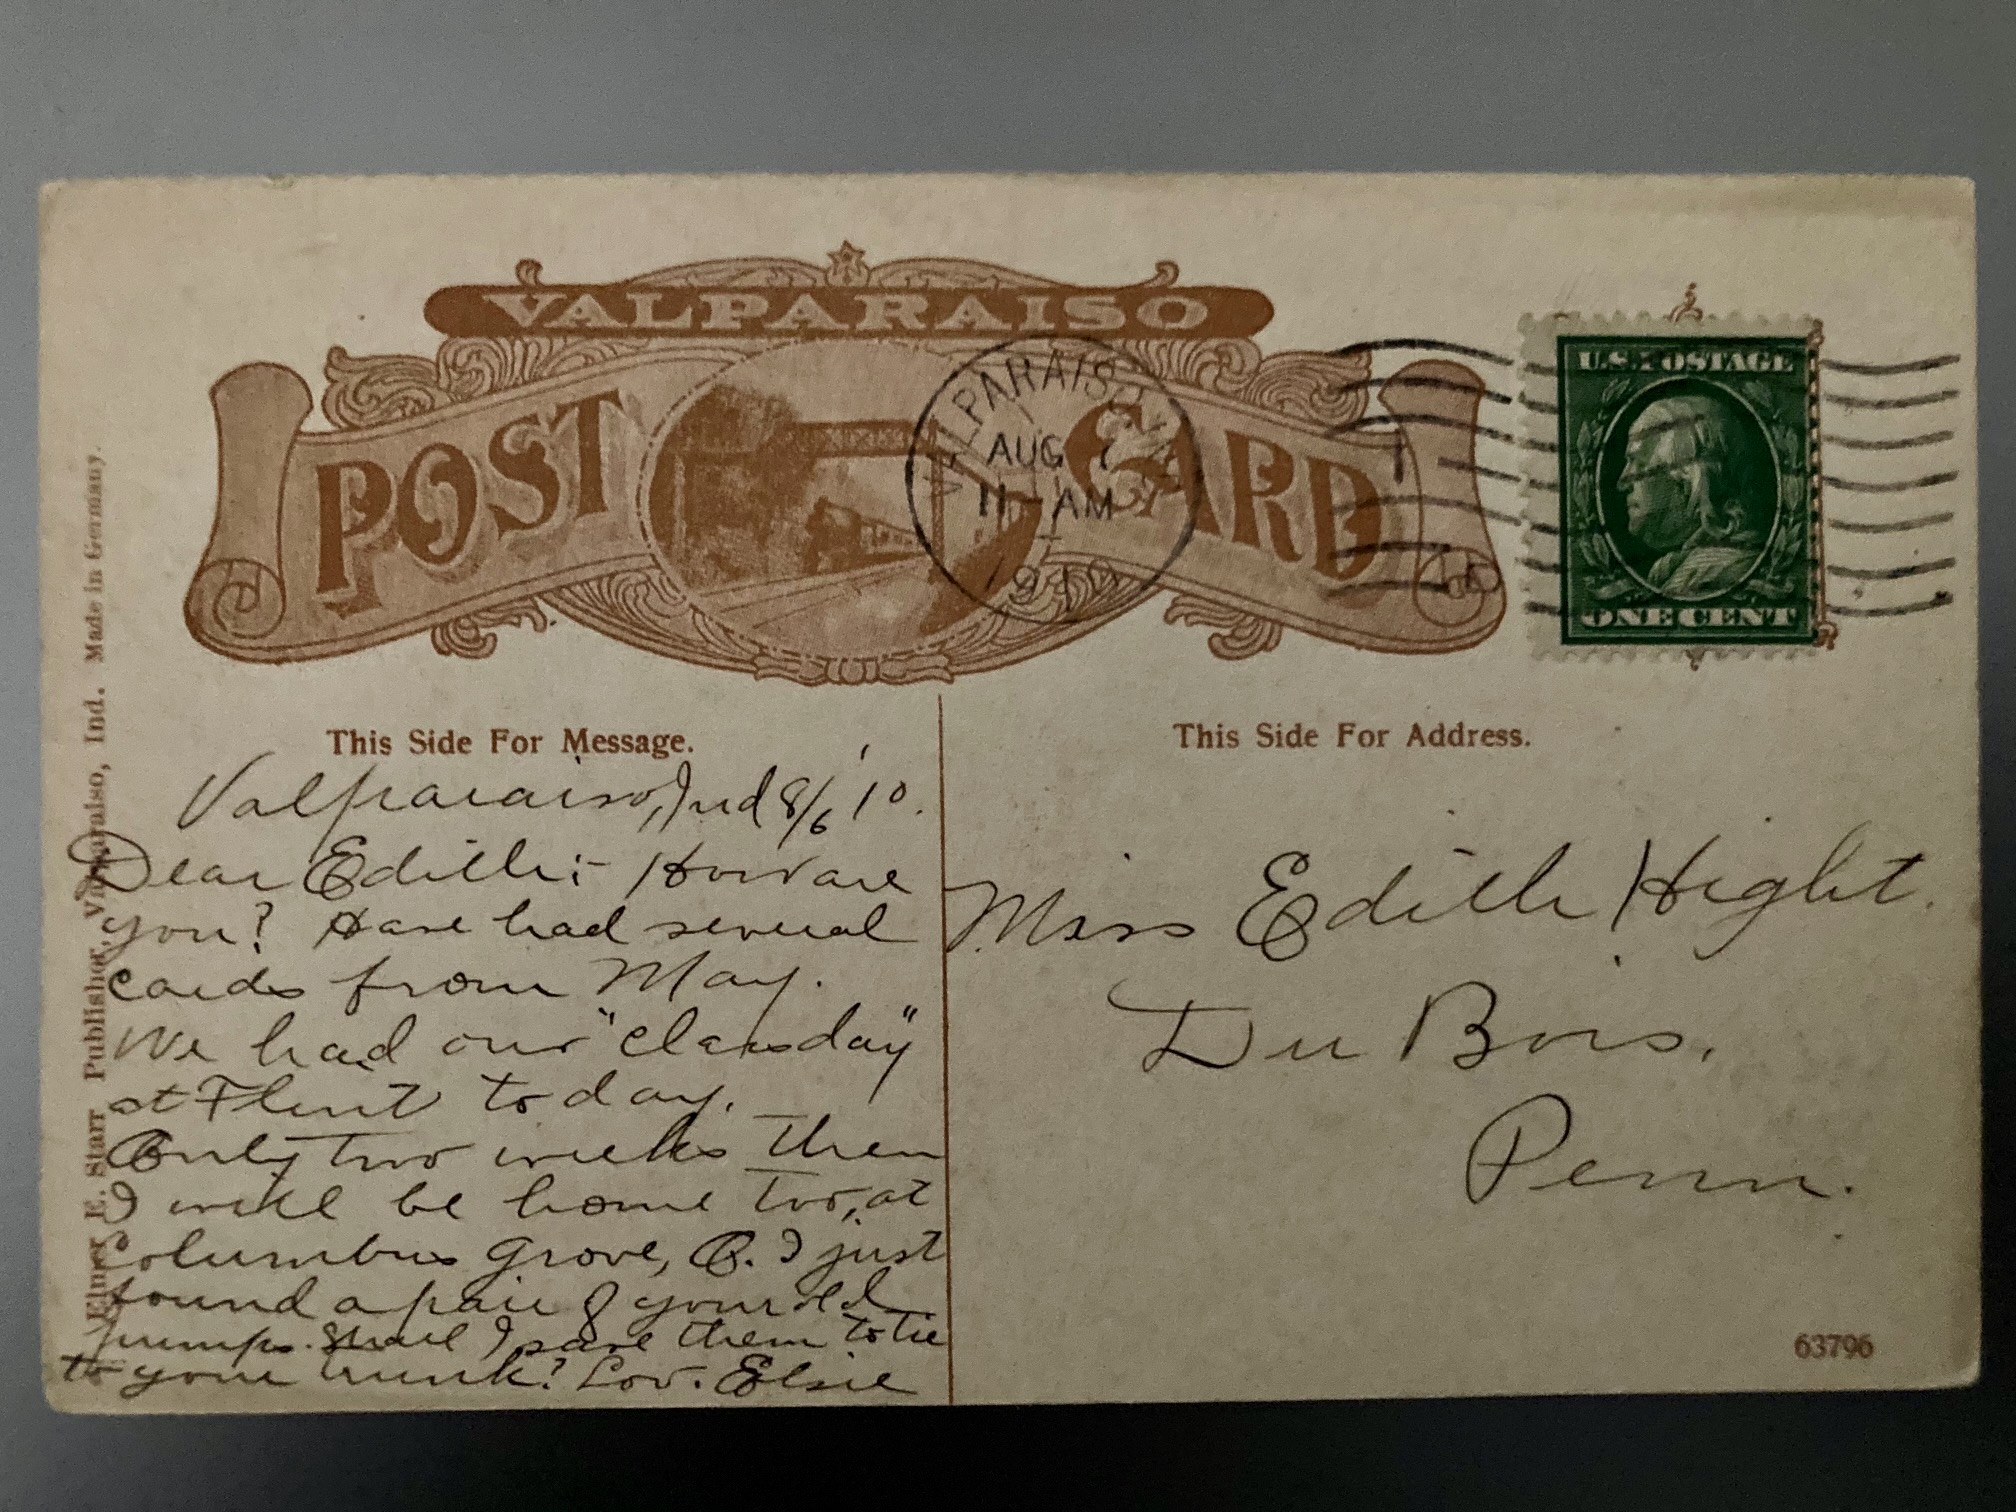 VALPARAISO
POST CARD
VALPARAISO, IND.
AUG 7
11-AM
1910
U.S. POSTAGE
ONE CENT
This Side For Message.
This Side For Address.
Valparaiso, Ind 8/6 '10.
Dear Edith:- How are
you? Have had several
cards from May.
We had our "classday"
at Flint today.
Only two weeks then
I will be home too, at
Columbus Grove, O. I just
found a pair of your old
pumps. Shall I save them to tie
to your trunk? Lov. Elsie
Miss Edith Hight.
Du Bois,
Penn.
63796
Elmer E. Starr Publisher, Valparaiso, Ind. Made in Germany.